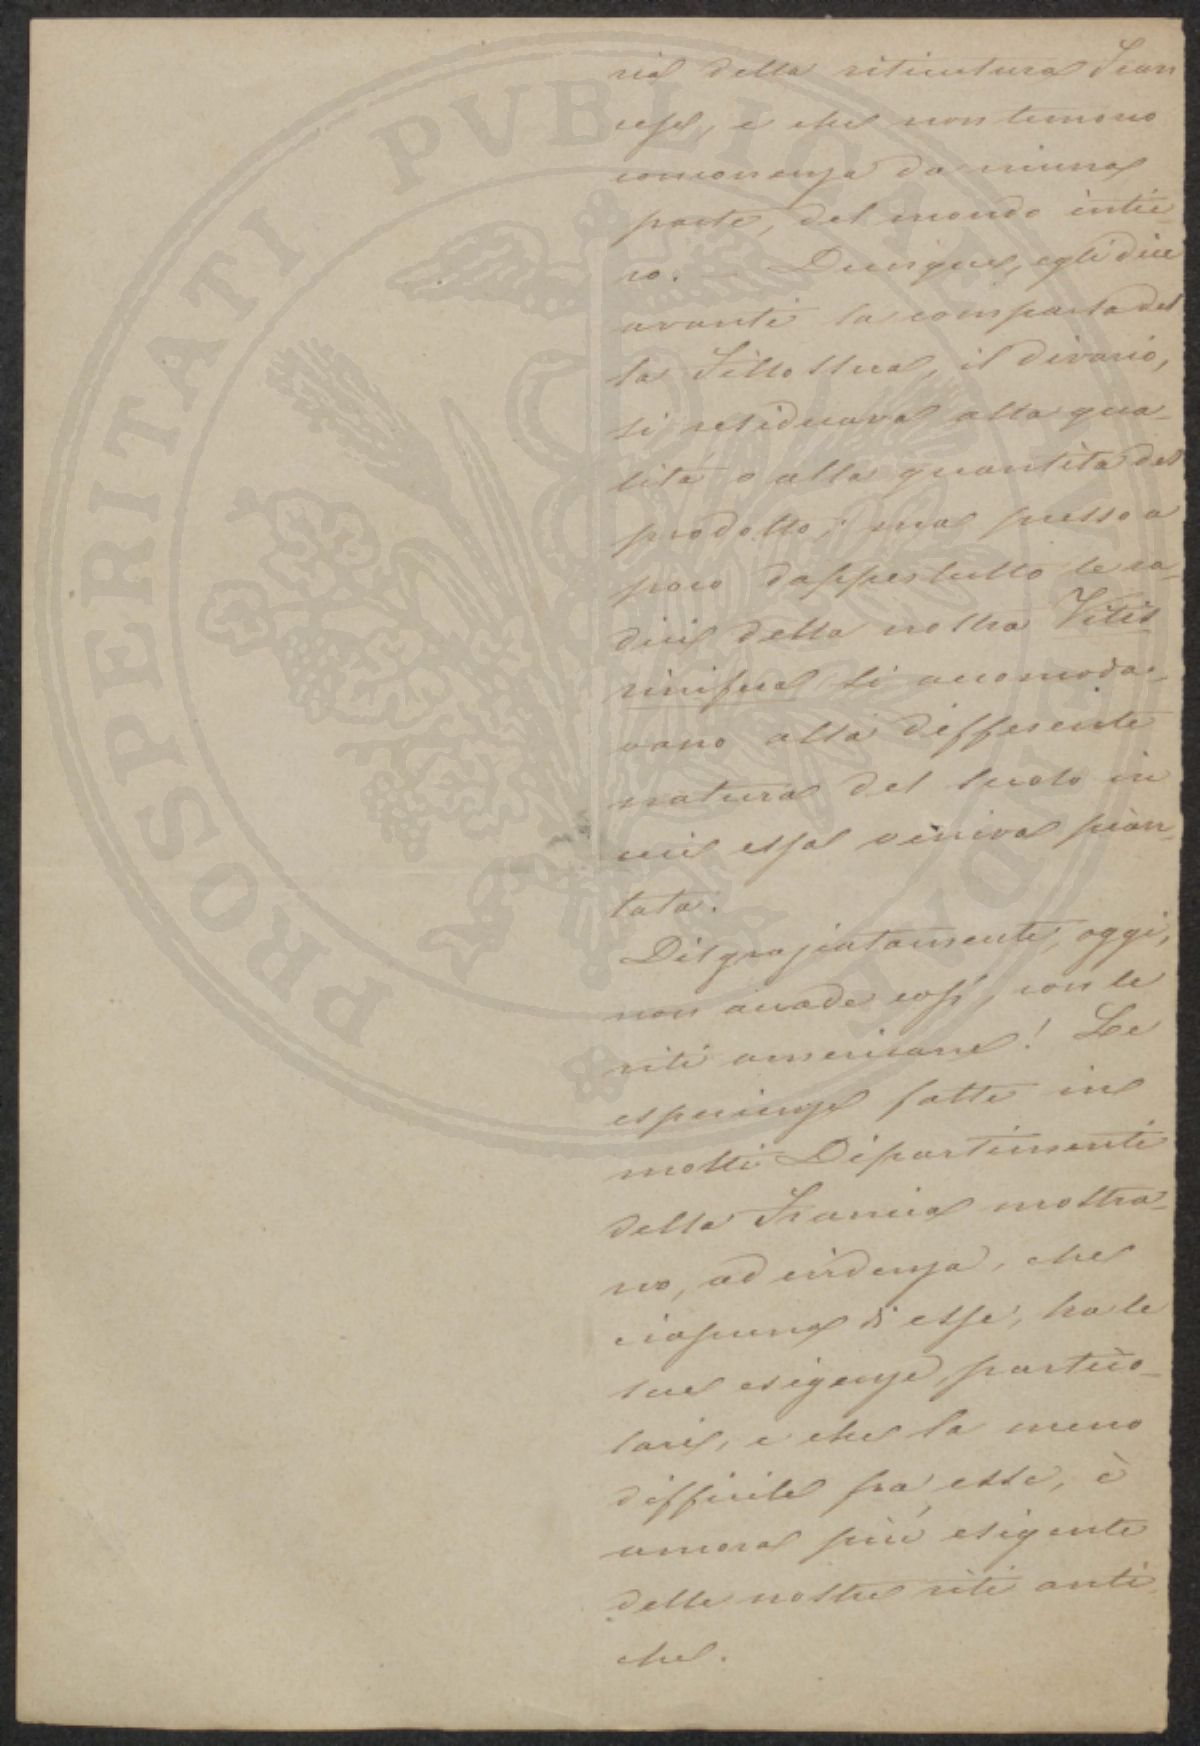 ria della viticultura Fran
cese, e che non temono
concorrenza da niuna
parte, del mondo intie-
ro. — Dunque, egli dice
avanti la comparsa del
la Fillossera, il divario,
si residuava alla qua-
lità o alla quantità del
prodotto; ma presso a
poco dappertutto le ra-
dici della nostra Vitis
vinifera si accomoda-
vano alla differente
natura del suolo in
cui essa veniva pian-
tata.
Disgraziatamente, oggi,
non accade così, con le
viti americane! Le
esperienze fatte in
molti Dipartimenti
della Francia mostra-
no, ad evidenza, che
ciascuna di esse, ha le
sue esigenze, partico-
lari, e che la meno
difficile fra esse, è
ancora più esigente
delle nostre viti anti-
che.
PROSPERITATI PVBLICAE AVGENDAE